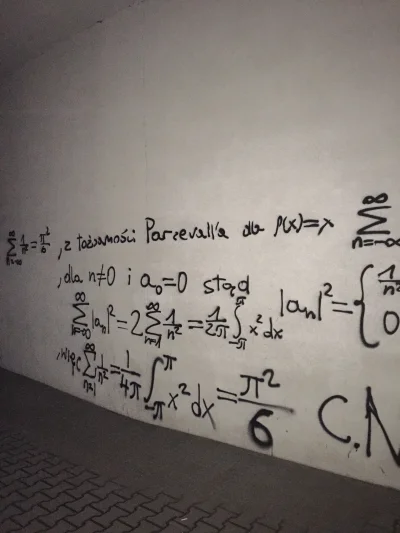 ∑_{n=1}^{∞} 1/n² = π²/6, z tożsamości Parceval'a dla f(x)=x ∑_{n=-∞}^{∞}
, dla n≠0 i a₀=0 stąd |aₙ|² = { 1/n² 0
∑_{n=-∞}^{∞} |aₙ|² = 2 ∑_{n=1}^{∞} 1/n² = 1/2π ∫_{-π}^{π} x² dx
, więc ∑_{n=1}^{∞} 1/n² = 1/4π ∫_{-π}^{π} x² dx = π²/6 C.N